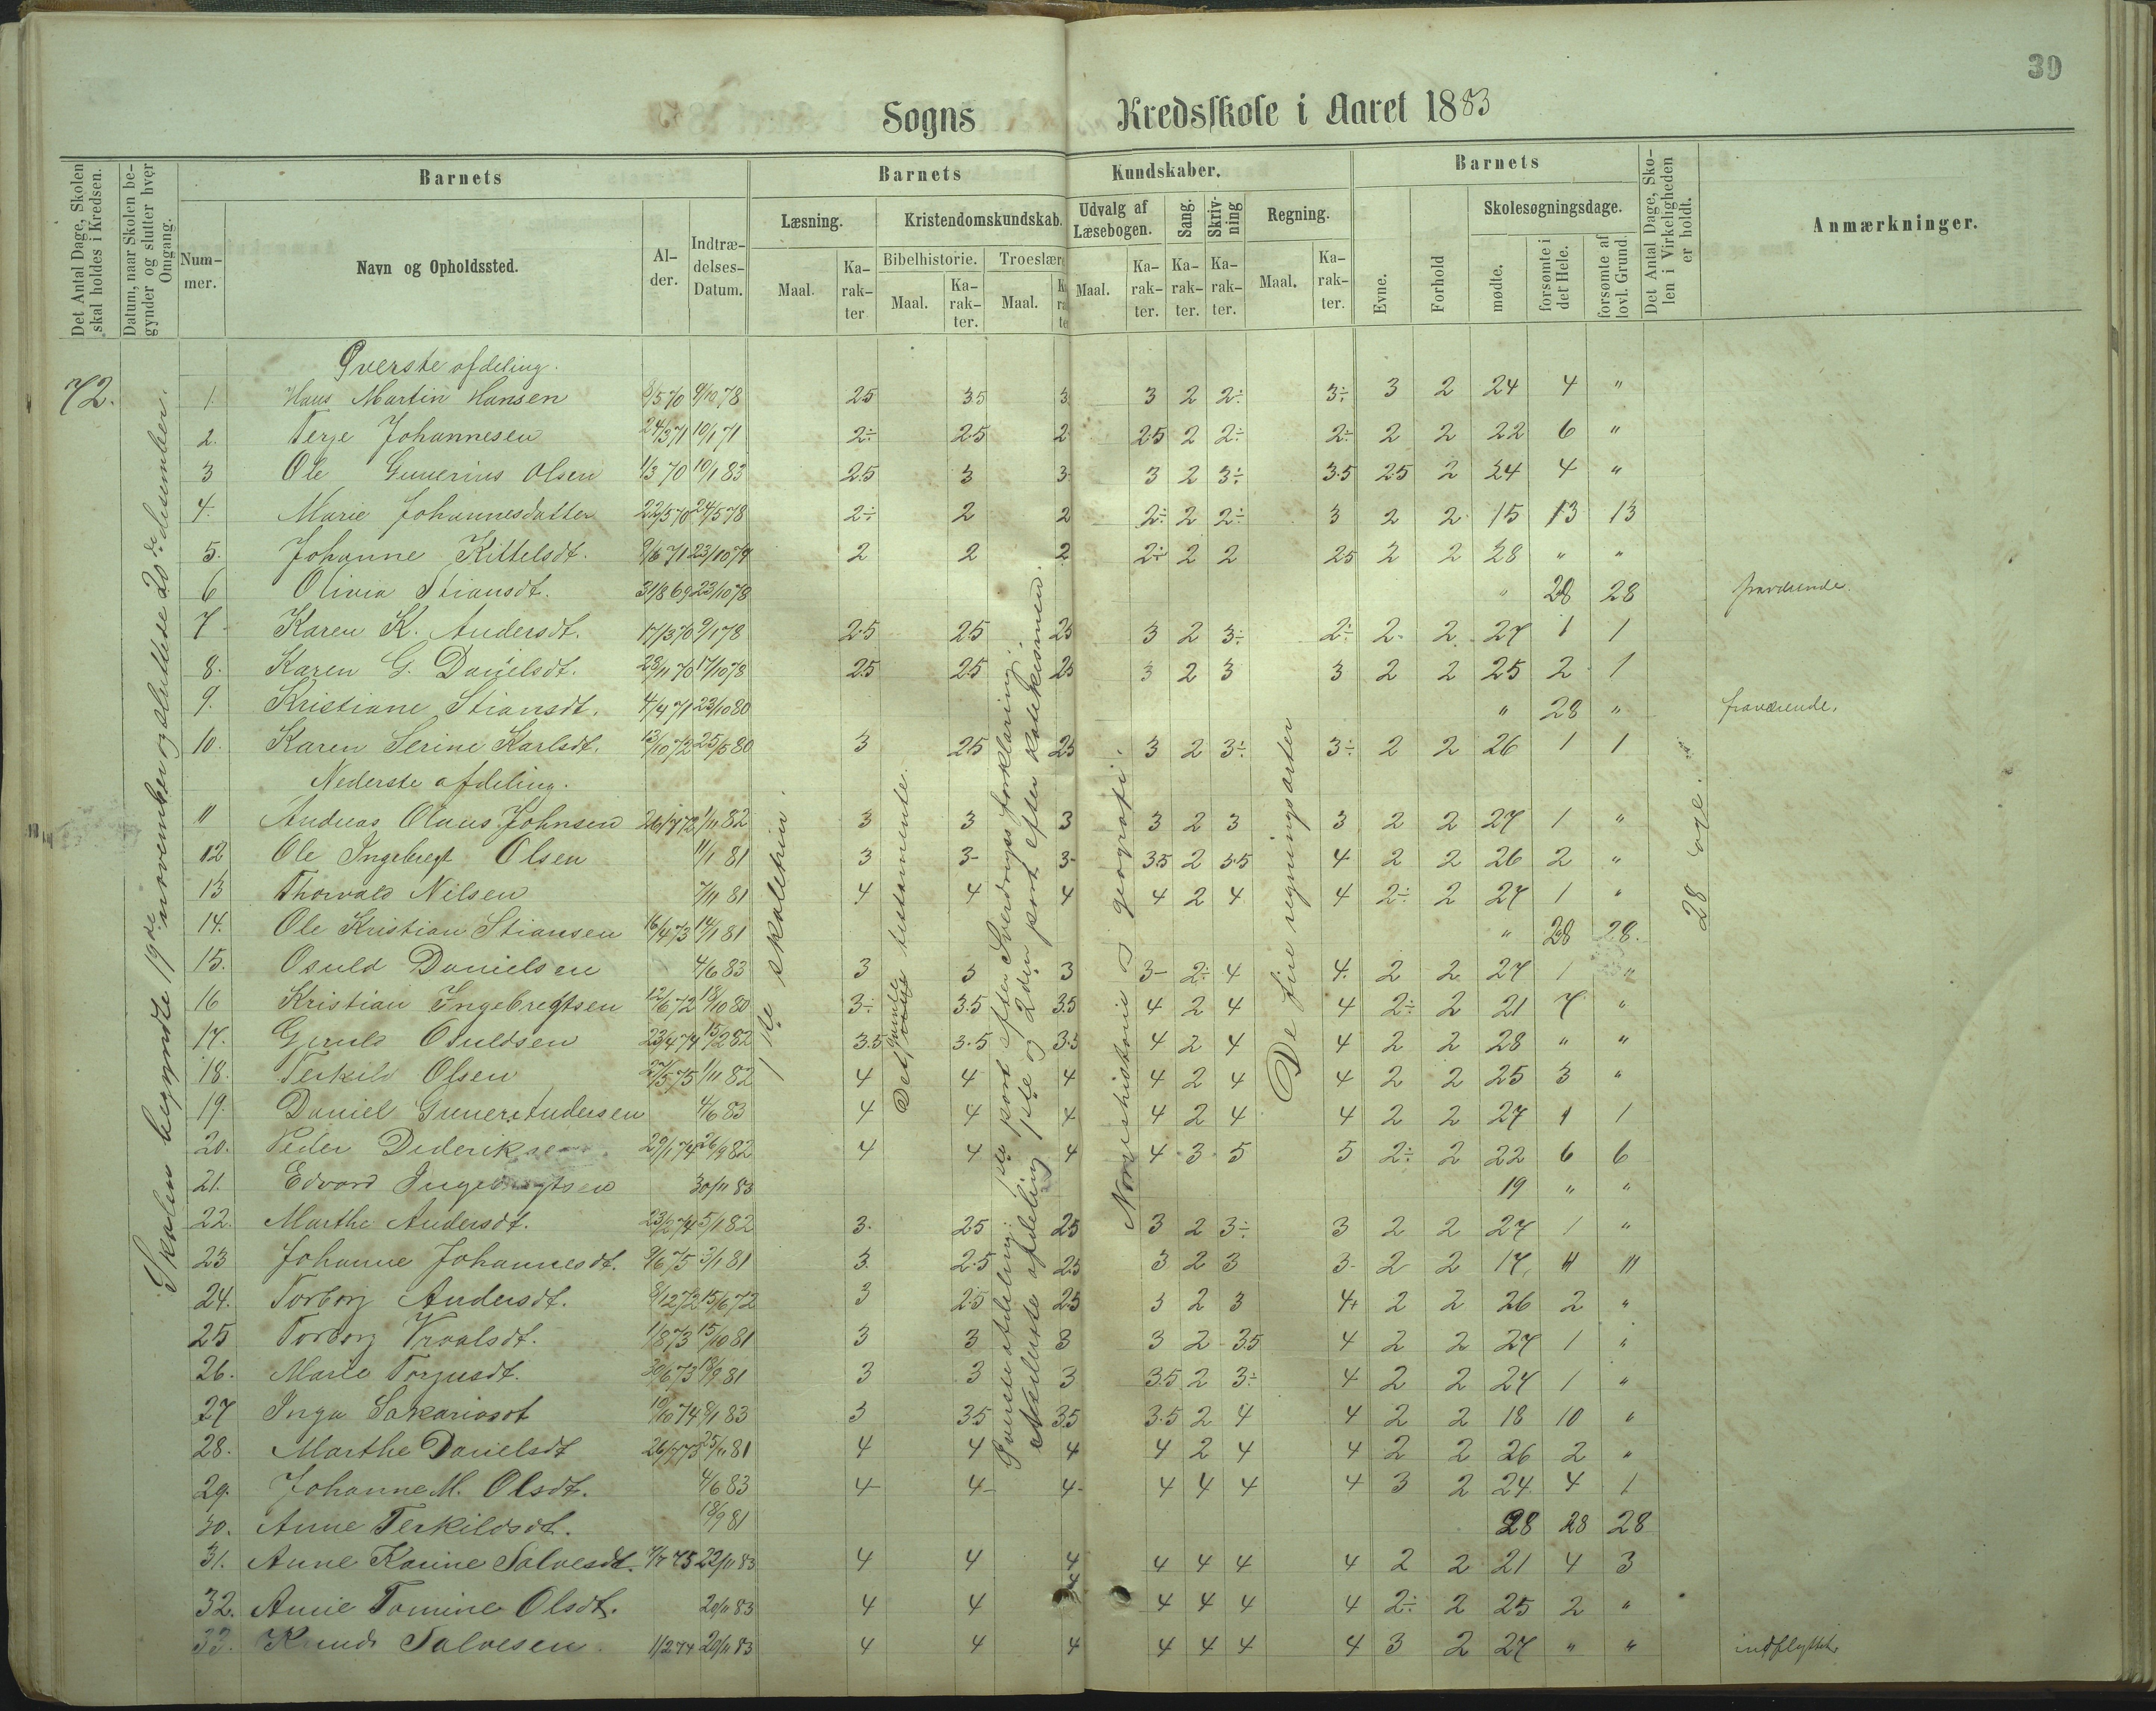 39
Sogns Kredsskole i Aaret 1883
Det Antal Dage, Skolen skal holdes i Kredsen.
Datum, naar Skolen begynder og slutter hver Omgang.
Nummer.
Barnets
Navn og Opholdssted.
Alder.
Indtrædelses-Datum.
Barnets Kundskaber.
Læsning.
Maal.
Karakter
Kristendomskundskab.
Bibelhistorie.
Maal.
Karakter.
Troeslær
Maal.
Udvalg af Læsebogen.
Maal.
Karakter.
Sang.
Karakter.
Skrivning
Karakter.
Regning.
Maal.
Karakter.
Barnets
Evne.
Forhold
Skolesøgningsdage.
mødte.
forsømte i det Hele.
forsømte af lovl. Grund.
Det Antal Dage, Skolen i Virkeligheden er holdt.
Anmærkninger.
72.
Skolen begyndte 19de november og sluttede 20de desember.
1ste skoletrin.
Det gamle testamente.
Øverste afdeling: 1ste part efter Sverdrups forklaring;
Nederste afdeling 1ste og 2den part efter katekismen.
Norgeshistorie og geografi.
De fire regningsarter
28 dage.
Øverste afdeling.
1. Hans Martin Hansen 8/5 70 9/10 78 2.5 3.5 3 3 2 2÷ 3÷ 3 2 24 4 "
2. Terje Johannesen 24/3 71 10/1 71 2÷ 2.5 2 2.5 2 2÷ 2÷ 2 2 22 6 "
3 Ole Gunerius Olsen 1/3 70 10/1 83 2.5 3 3 3 2 3÷ 3.5 2.5 2 24 4 "
4. Marie Johannesdatter 22/5 70 24/5 78 2÷ 2 2 2÷ 2 2÷ 3 2 2 15 13 13
5. Johanne Kittelsdt. 9/6 71 23/10 79 2 2 2 2÷ 2 2 2.5 2 2 28 " "
6 Olivia Stiansdt. 31/8 69 23/10 78 " 28 28 fraværende.
7 Karen K. Andersdt. 17/3 70 9/1 78 2.5 2.5 2.5 3 2 3÷ 2÷ 2 2 27 1 1
8. Karen G. Danielsdt. 28/11 70 17/10 78 2.5 2.5 2.5 3 2 3 3 2 2 25 2 1
9. Kristiane Stiansdt. 4/4 71 23/10 80 " 28 " fraværende.
10. Karen Serine Karlsdt. 13/10 72 25/5 80 3 2.5 2.5 3 2 3÷ 3÷ 2 2 26 1 1
Nederste afdeling.
11 Andreas Olaus Johnsen 26/7 72 1/11 82 3 3 3 3 2 3 3 2 2 27 1 "
12 Ole Ingebregt Olsen 11/1 81 3 3- 3- 3.5 2 3.5 4 2 2 26 2 "
13 Thorvald Nilsen 7/11 81 4 4 4 4 2 4 4 2÷ 2 27 1 "
14. Ole Kristian Stiansen 16/4 73 14/1 81 " 28 28.
15. Osuld Danielsen 4/6 83 3 3 3 3- 2÷ 4 4. 2 2 27 1 "
16 Kristian Ingebregtsen 12/6 72 18/10 80 3÷ 3.5 3.5 4 2 4 4 2÷ 2 21 7 "
17. Geruld Osuldsen 23/4 74 15/2 82 3.5 3.5 3.5 4 2 4 4 2 2 28 " "
18. Terkild Olsen 27/5 75 1/11 82 4 4 4 4 2 4 4 2 2 25 3 "
19. Daniel Guner. Andersen 4/6 83 4 4 4 4 2 4 4 2 2 27 1 1
20. Peder Dideriksen 29/1 74 26/9 82 4 4 4 4 3 5 5 2÷ 2 22 6 6
21. Edvard Ingebregtsen 30/11 83 19 " "
22. Marthe Andersdt. 23/2 74 5/1 82 3. 2.5 2.5 3 2 3÷ 3 2 2 27 1 "
23 Johanne Johannesdt. 9/6 75 3/1 81 3. 2.5 2.5 3 2 3 3- 2 2 17 11 11
24. Torborg Andersdt. 8/12 72 15/6 72 3 2.5 2.5 3 2 3 4+ 2 2 26 2 "
25 Torborg Vroalsdt. 1/8 73 15/10 81 3 3 3 3 2 3.5 4 2 2 27 1 "
26. Marie Torjusdt. 30/6 73 18/9 81 3 3 3 3.5 2 3÷ 4 2 2 27 1 "
27 Inga Sakariasdt 19/10 74 8/1 83 3 3.5 3.5 3.5 2 4 4 2 2 18 10 "
28. Marthe Danielsdt 26/7 73 25/11 81 4 4 4 4 2 4 4 2 2 26 2 "
29. Johanne M. Olsdt. 4/6 83 4- 4- 4- 4 4 4 4 3 2 24 4 1
30. Anne Terkildsdt. 18/9 81 28 28 28
31. Anne Karine Salvesdt. 7/7 75 22/11 83 4 4 4 4 4 4 4 2 2 21 4 3
32. Anne Tomine Olsdt. 20/11 83 4 4 4 4 4 4 4 2÷ 2 25 2 "
33. Knud Salvesen. 1/2 74 20/11 83 4 4 4 4 4 4 4 3 2 27 " " indflyttet.